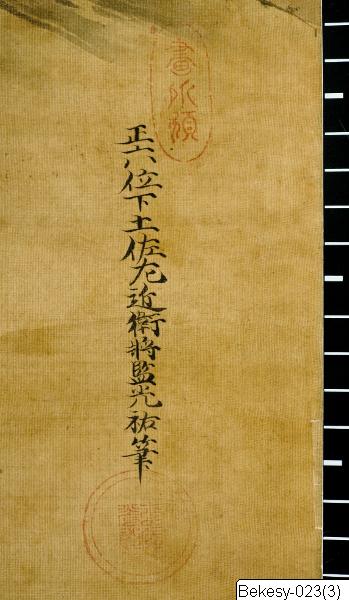 畫所預
正六位下土佐左近衛將監光祐筆
Bekesy-023(3)